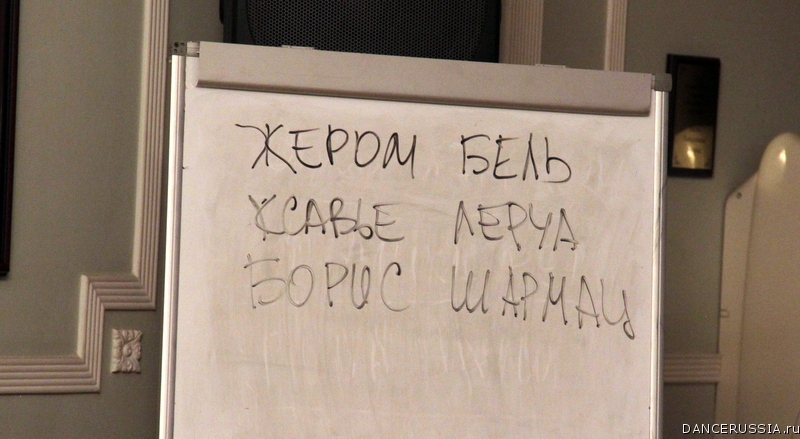 ЖЕРОМ БЕЛЬ
КСАВЬЕ ЛЕРУА
БОРИС ШАРМАЦ
DANCERUSSIA.ru